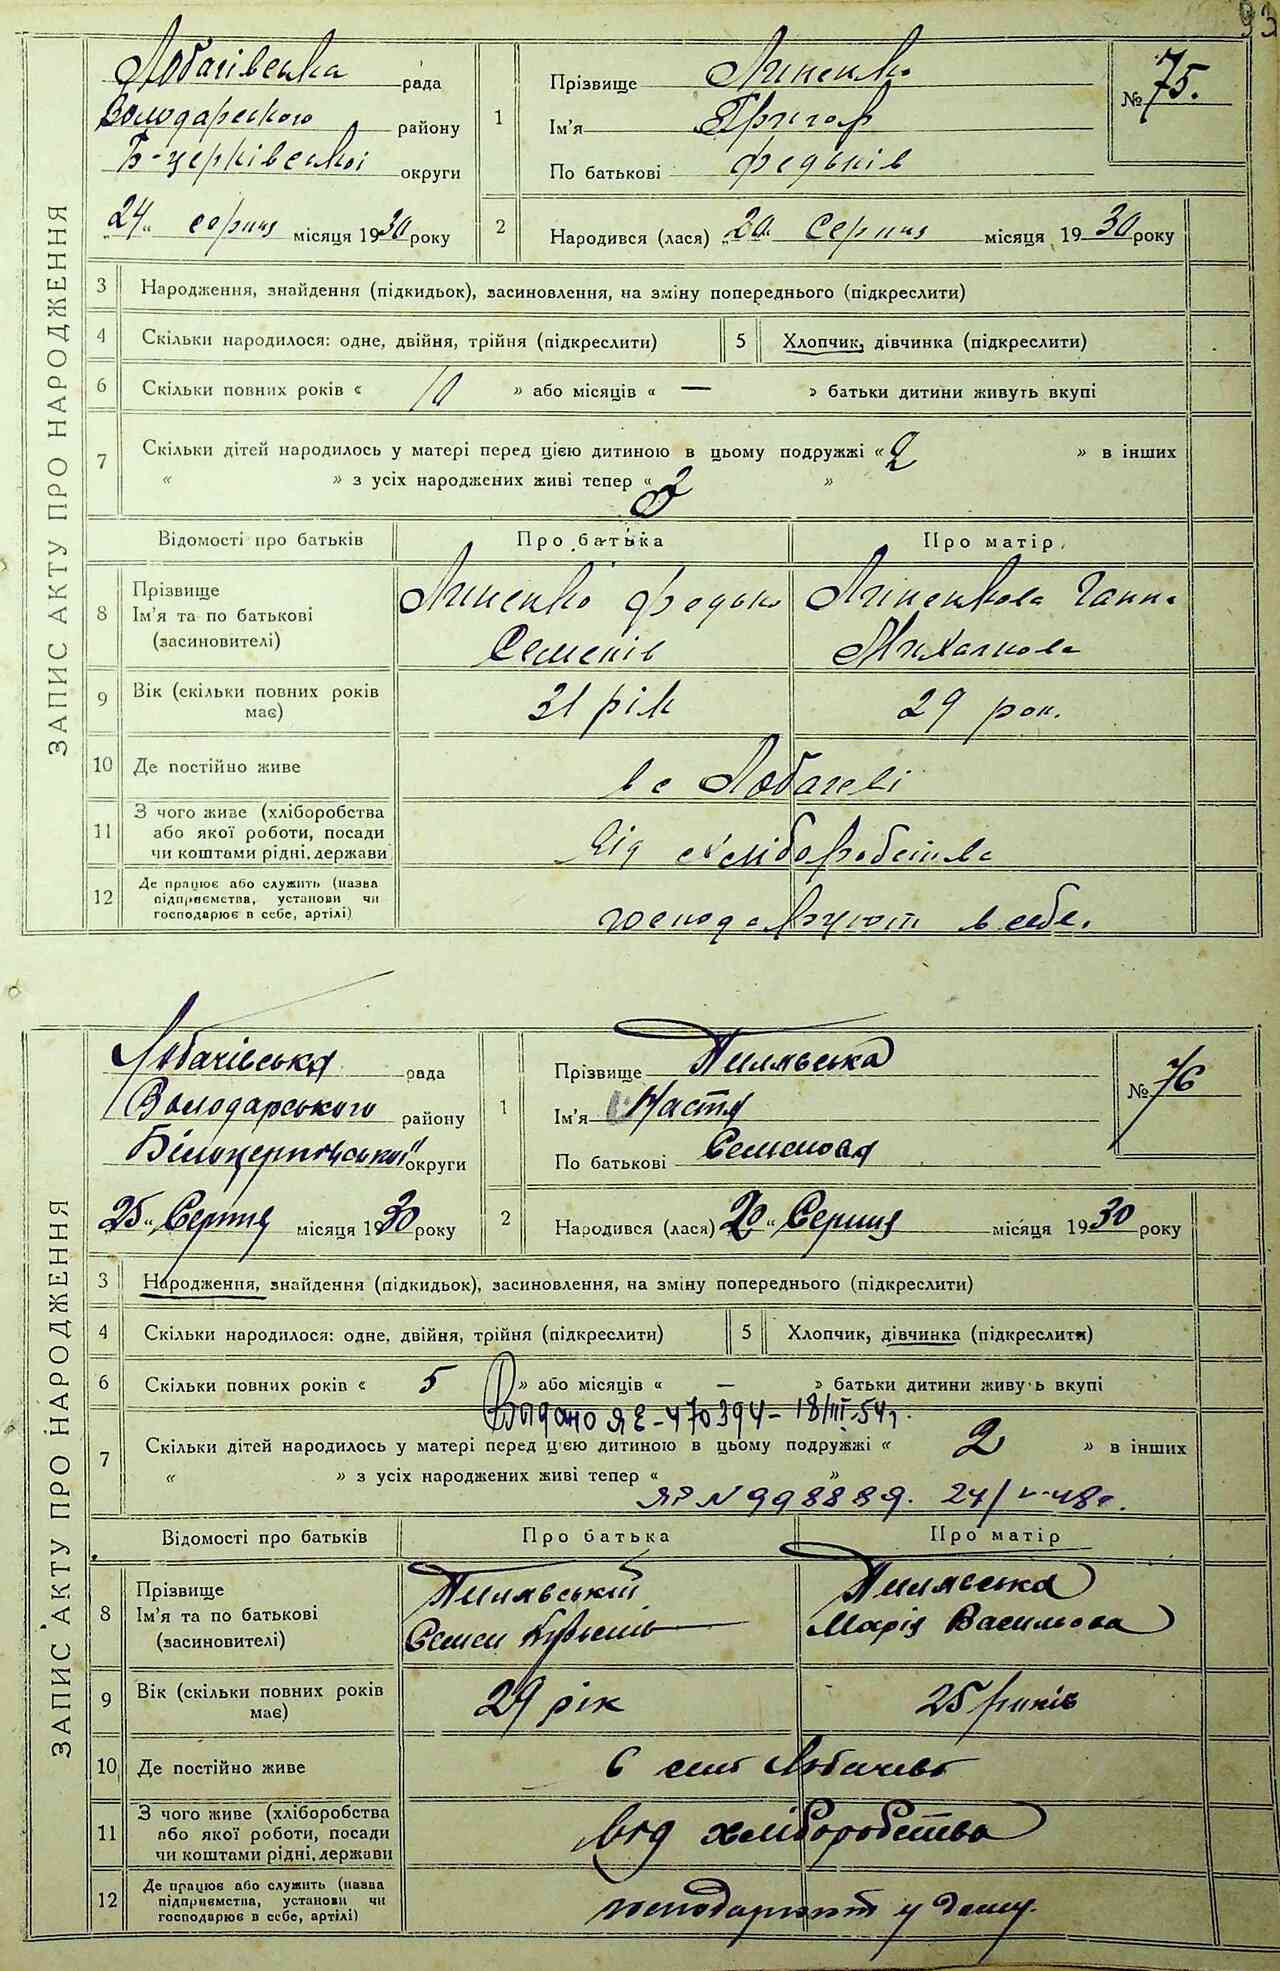 93
ЗАПИС АКТУ ПРО НАРОДЖЕННЯ
Лобачівська рада
Володарського району
Б-церківської округи
„24“ серпня місяця 1930 року
1
Прізвище Линенко
Ім'я Григор
По батькові Федьків
№ 75.
2
Народився (лася) „20“ Серпня місяця 1930 року
3 Народження, знайдення (підкидьок), засиновлення, на зміну попереднього (підкреслити)
4 Скільки народилося: одне, двійня, трійня (підкреслити) 5 Хлопчик, дівчинка (підкреслити)
6 Скільки повних років « 10 » або місяців « — » батьки дитини живуть вкупі
7 Скільки дітей народилось у матері перед цією дитиною в цьому подружжі « 2 » в інших
« » з усіх народжених живі тепер « 3 »
Відомості про батьків Про батька Про матір
8 Прізвище
Ім'я та по батькові
(засиновителі)
Линенко Федько
Семенів
Линенкова Ганна
Михалкова
9 Вік (скільки повних років має) 31 рік 29 рок.
10 Де постійно живе в с Лобачеві
11 З чого живе (хліборобства
або якої роботи, посади
чи коштами рідні, держави
Від хліборобства
12 Де працює або служить (назва
підприємства, установи чи
господарює в себе, артілі)
господарують в себе.
ЗАПИС АКТУ ПРО НАРОДЖЕННЯ
Лобачівська рада
Володарського району
Білоцерківської округи
„25“ Серпня місяця 1930 року
1
Прізвище Пилявська
Ім'я Настя
По батькові Семенова
№ 76
2
Народився (лася) „20“ Серпня місяця 1930 року
3 Народження, знайдення (підкидьок), засиновлення, на зміну попереднього (підкреслити)
4 Скільки народилося: одне, двійня, трійня (підкреслити) 5 Хлопчик, дівчинка (підкреслити)
6 Скільки повних років « 5 » або місяців « — » батьки дитини живуть вкупі
Видано ЯЕ-470394- 18/III-54р.
7 Скільки дітей народилось у матері перед цією дитиною в цьому подружжі « 2 » в інших
« » з усіх народжених живі тепер « »
ЯР N 998889. 24/V-48р.
Відомості про батьків Про батька Про матір
8 Прізвище
Ім'я та по батькові
(засиновителі)
Пилявський
Семен
Пилявська
Марія Васильова
9 Вік (скільки повних років має) 29 рік 25 років
10 Де постійно живе в селі Лобачеві
11 З чого живе (хліборобства
або якої роботи, посади
чи коштами рідні, держави
від хліборобства
12 Де працює або служить (назва
підприємства, установи чи
господарює в себе, артілі)
господарюють у дому.